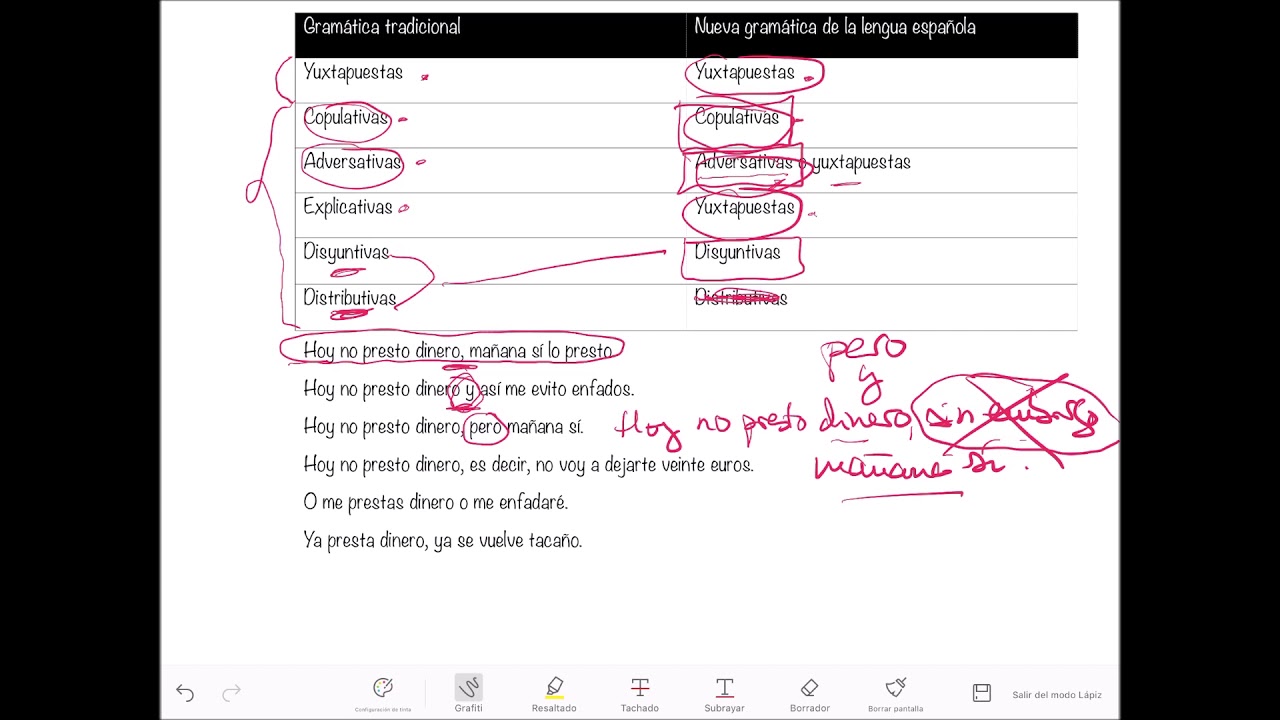 Gramática tradicional Nueva gramática de la lengua española
Yuxtapuestas Yuxtapuestas
Copulativas Copulativas
Adversativas Adversativas o yuxtapuestas
Explicativas Yuxtapuestas
Disyuntivas Disyuntivas
Distributivas Distributivas
Hoy no presto dinero, mañana sí lo presto
Hoy no presto dinero y así me evito enfados.
Hoy no presto dinero, pero mañana sí.
Hoy no presto dinero, es decir, no voy a dejarte veinte euros.
O me prestas dinero o me enfadaré.
Ya presta dinero, ya se vuelve tacaño.
pero
y
Hoy no presto dinero, sin embargo
mañana sí.
Configuración de tinta
Grafiti
Resaltado
Tachado
Subrayar
Borrador
Borrar pantalla
Salir del modo Lápiz